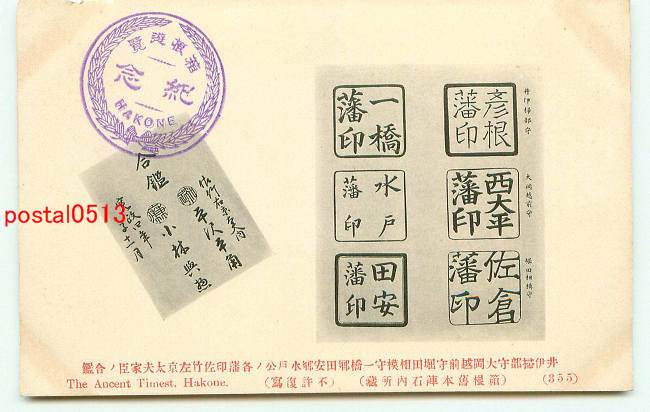 箱根遊覧
紀念
HAKONE
合鑑
小林與惣
postal0513
彦根
藩印
井伊掃部守
一橋
藩印
西大平
藩印
大岡越前守
水戸
藩印
佐倉
藩印
堀田相模守
田安
藩印
井伊掃部守大岡越前守堀田相模守一橋郷田安郷水戸公ノ各藩印佐竹左京太夫家臣ノ合鑑
The Ancent Timest, Hakone. (不許復寫) (箱根舊本陣石内所藏) (355)